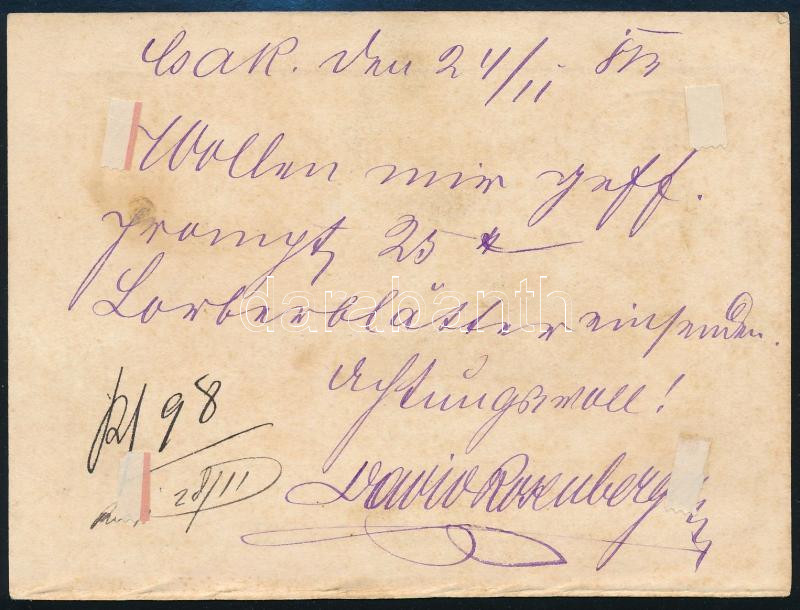 Csak. den 24/II
Wollen mir geff.
prompt 25
Lorberblätter einsenden.
Achtungsvoll!
David Rosenberg
98
28/III
darabanth